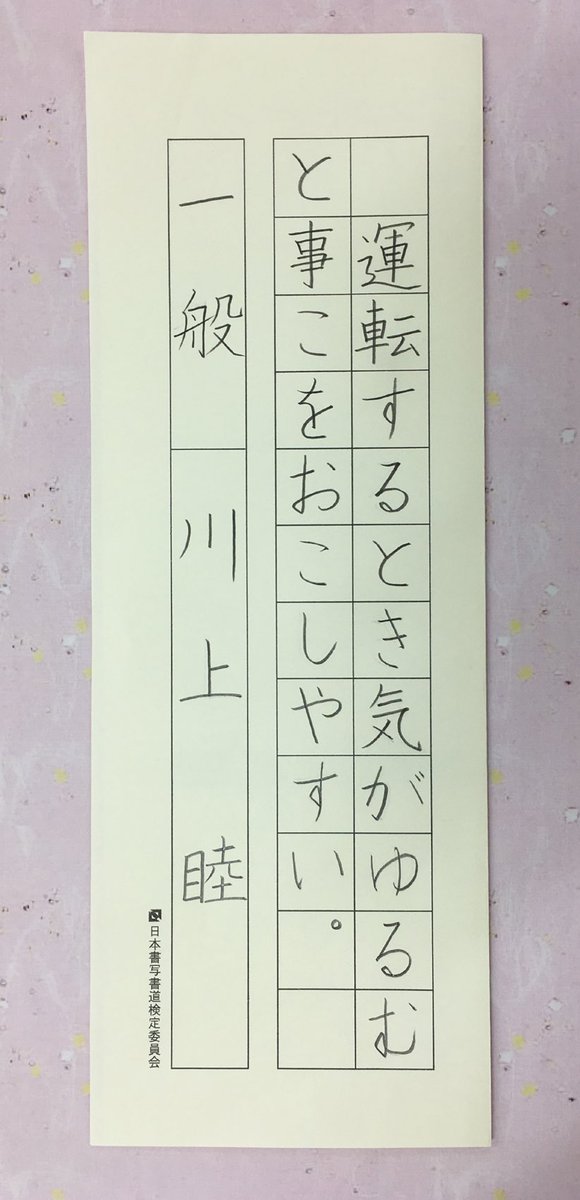 運転するとき気がゆるむ
と事こをおこしやすい。
一般 川上 睦
日本書写書道検定委員会